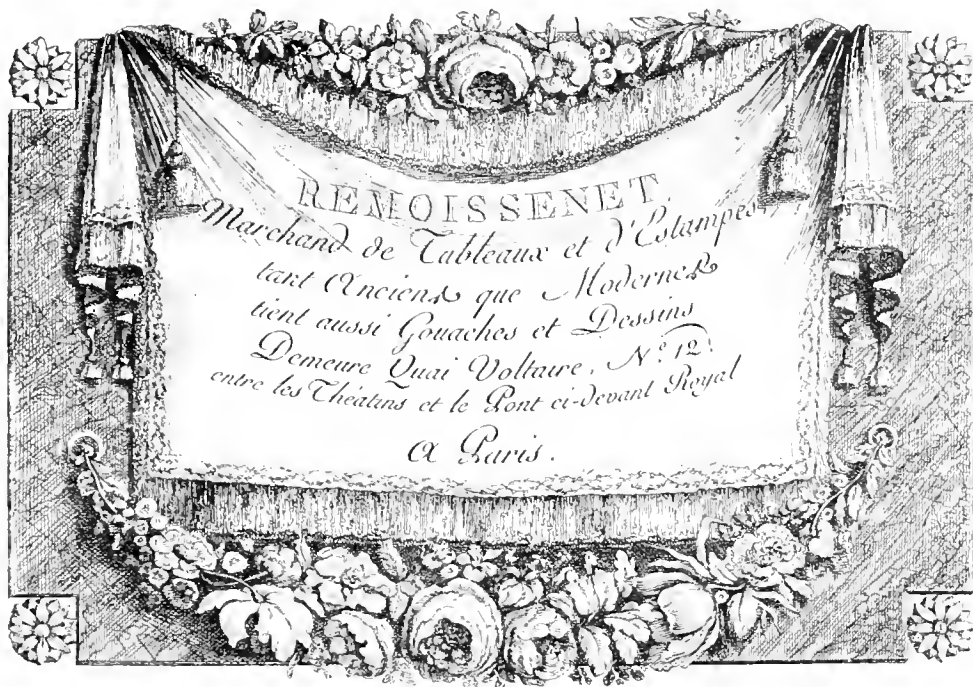 REMOISSENET
Marchand de Tableaux et d'Estampes,
tant Anciens que Modernes
tient aussi Gouaches et Dessins
Demeure Quai Voltaire, N.º 12.
entre les Théatins et le Pont ci-devant Royal
A Paris.